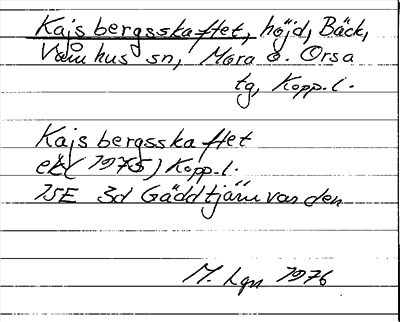 Kajsbergsskaftet, höjd, Bäck,
Våmhus sn, Mora o. Orsa
tg, Kopp. l.
Kajsbergsskaftet
ek (1975) Kopp. l.
15E 3d Gäddtjärnvarden
M. Lgn 1976